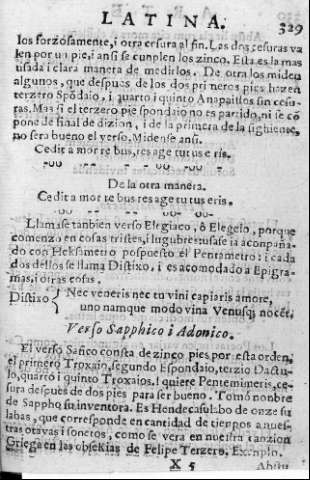 LATINA. 329
los forzosamente, i otra cesura al fin. Las dos cesuras va
len por un pie, i ansi se cunplen los zinco. Esta es la mas
usada i clara manera de medirlos. De otra los miden
algunos, que despues de los dos primeros pies hazen
terzero Spõdaio, i quarto i quinto Anapaitlos sin cesu-
ras. Mas si el terzero pie spondaio no es partido, ni se cõ
pone de final de dizion, i de la primera de la sighiente,
no sera bueno el verso. Midense ansi.
Cedit a mor re bus, res age tu tus e ris.
De la otra manera.
Cedit a mor re bus, res age tu tus eris.
Llamase tanbien verso Elegiaco, ô Elegelo, porque
comenzo en cosas tristes, i lugubres: usase ia aconpaña-
do con Heksametro pospuesto el Pentametro: i cada
dos dellos se llama Distixo, i es acomodado a Epigra-
mas, i otras cosas.
Distixo { Nec veneris nec tu vini capiaris amore,
uno namque modo vina Venusq; nocēt,
Verso Sapphico i Adonico.
El verso Safico consta de zinco pies por esta orden,
el primero Troxaio, segundo Espondaio, terzio Dactu-
lo, quarto i quinto Troxaios. I quiere Pentemimeris, ce-
sura despues de dos pies para ser bueno. Tomó nonbre
de Sappho su inventora. Es Hendecasulabo de onze su
labas, que corresponde en cantidad de tienpos a nues-
tras otavas i sonetos, como se vera en nuestra canzion
Griega en las obsekias de Felipe Terzero. Exenplo.
X 5